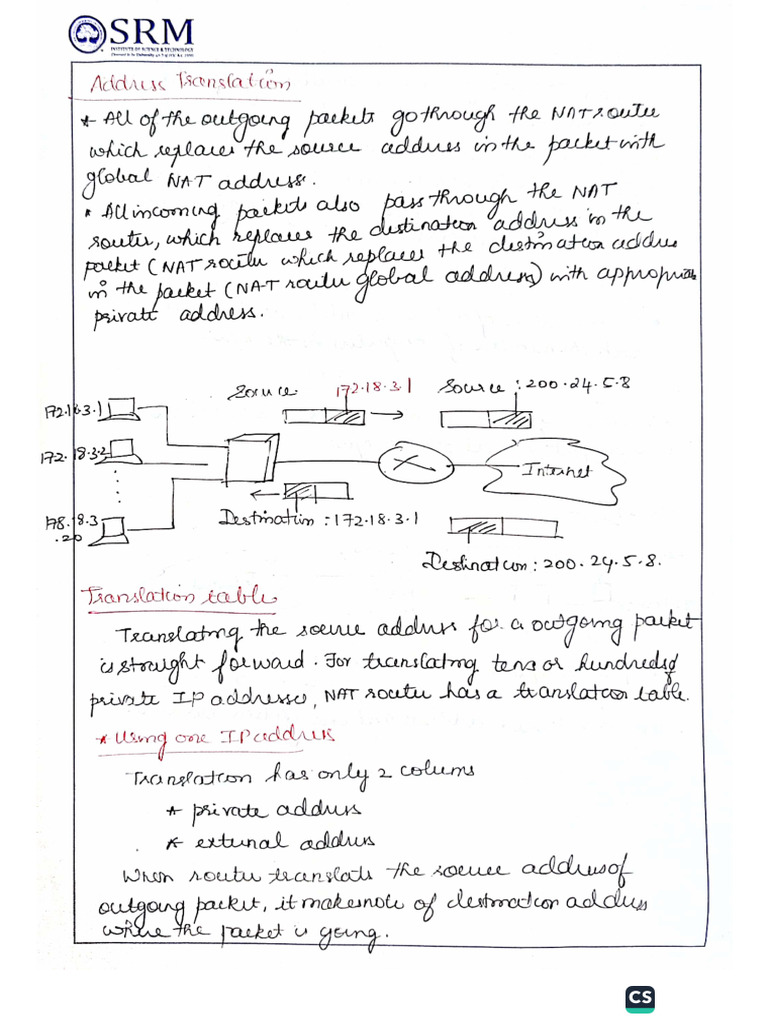 SRM
INSTITUTE OF SCIENCE & TECHNOLOGY
Address Translation
* All of the outgoing packets go through the NAT router
which replaces the source address in the packet with
global NAT address.
* All incoming packets also pass through the NAT
router, which replaces the destination address in the
packet (NAT router which replaces the destination address
in the packet (NAT router global address) with appropriate
private address.
Source 172.18.3.1 Source : 200.24.5.8
172.18.3.1
172.18.3.2
Internet
178.18.3
.20
Destination : 172.18.3.1
Destination : 200.24.5.8.
Translation table
Translating the source address for a outgoing packet
is straight forward. For translating tens or hundreds of
private IP addresses, NAT router has a translation table.
* Using one IP address
Translation has only 2 colums
* private address
* external address
When router translats the source address of
outgoing packet, it makes note of destination address
where the packet is going.
CS